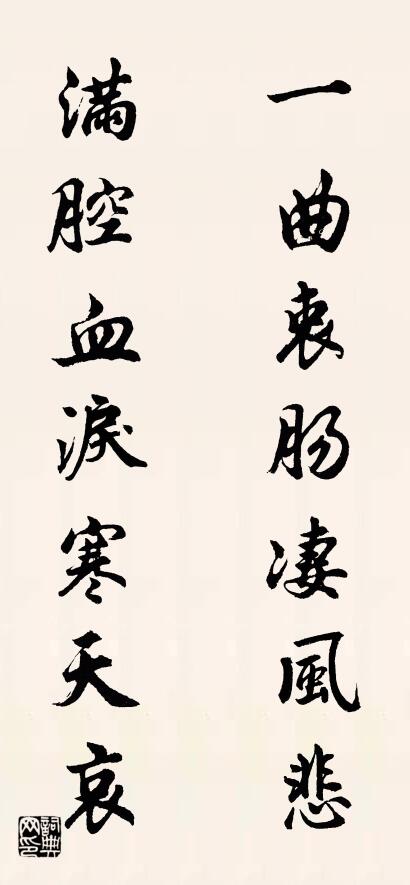 一曲衷肠凄風悲
滿腔血淚寒天哀
詞典网印